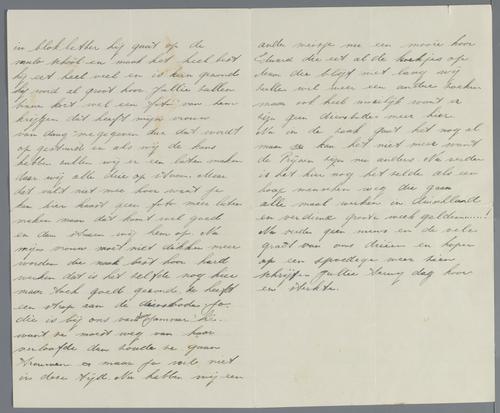 in blokletter hij gaat op de
mulo school en maakt het heel best
hij eet heel veel en is kern gezond
hij word al groot hoor jullie zullen
kort wel een foto van hem
krijgen dit heeft mijn vrouw
van daag meegegeven dus dat wordt
op gestuurd en als wij de kans
hebben zullen wij er een laten maken
daar wij alle drie op staan. Maar
dat valt niet mee hoor want je
kan hier haast geen foto meer laten
maken maar dat komt wel goed
en dan sturen wij hem op. Nu
mijn vrouw moet niet dikker meer
worden die maak best hoor hard
werken dat is het zelfde nog hier
maar toch goed gezond ze heeft
een strop aan de dienstbode Jo.
die is bij ons vanaf Januari
want ze moest weg van haar
verloofde dan zouden ze gaan
trouwen en maar ja wie niet
in deze tijd. Nu hebben wij een
ander meisje nu een mooie hoor
die eet al de koekjes op
daan die blijft niet lang wij
zullen wel weer een andere zoeken
maar ook heel moeilijk want er
zijn geen dienstboden meer hier.
Nu in de zaak gaat het nog al
maar ze kan het niet meer want
de tijden zijn nu anders. Nu verder
is het hier nog het zelfde als een
hoop menschen weg die gaan
alle maal werken in Duitschland
en verdiend groote geld
Nu verder geen nieuws en de vele
groeten van ons drieen en hopen
op een spoedige weer zien
schrijf jullie terug dag hoor
en sterkte.